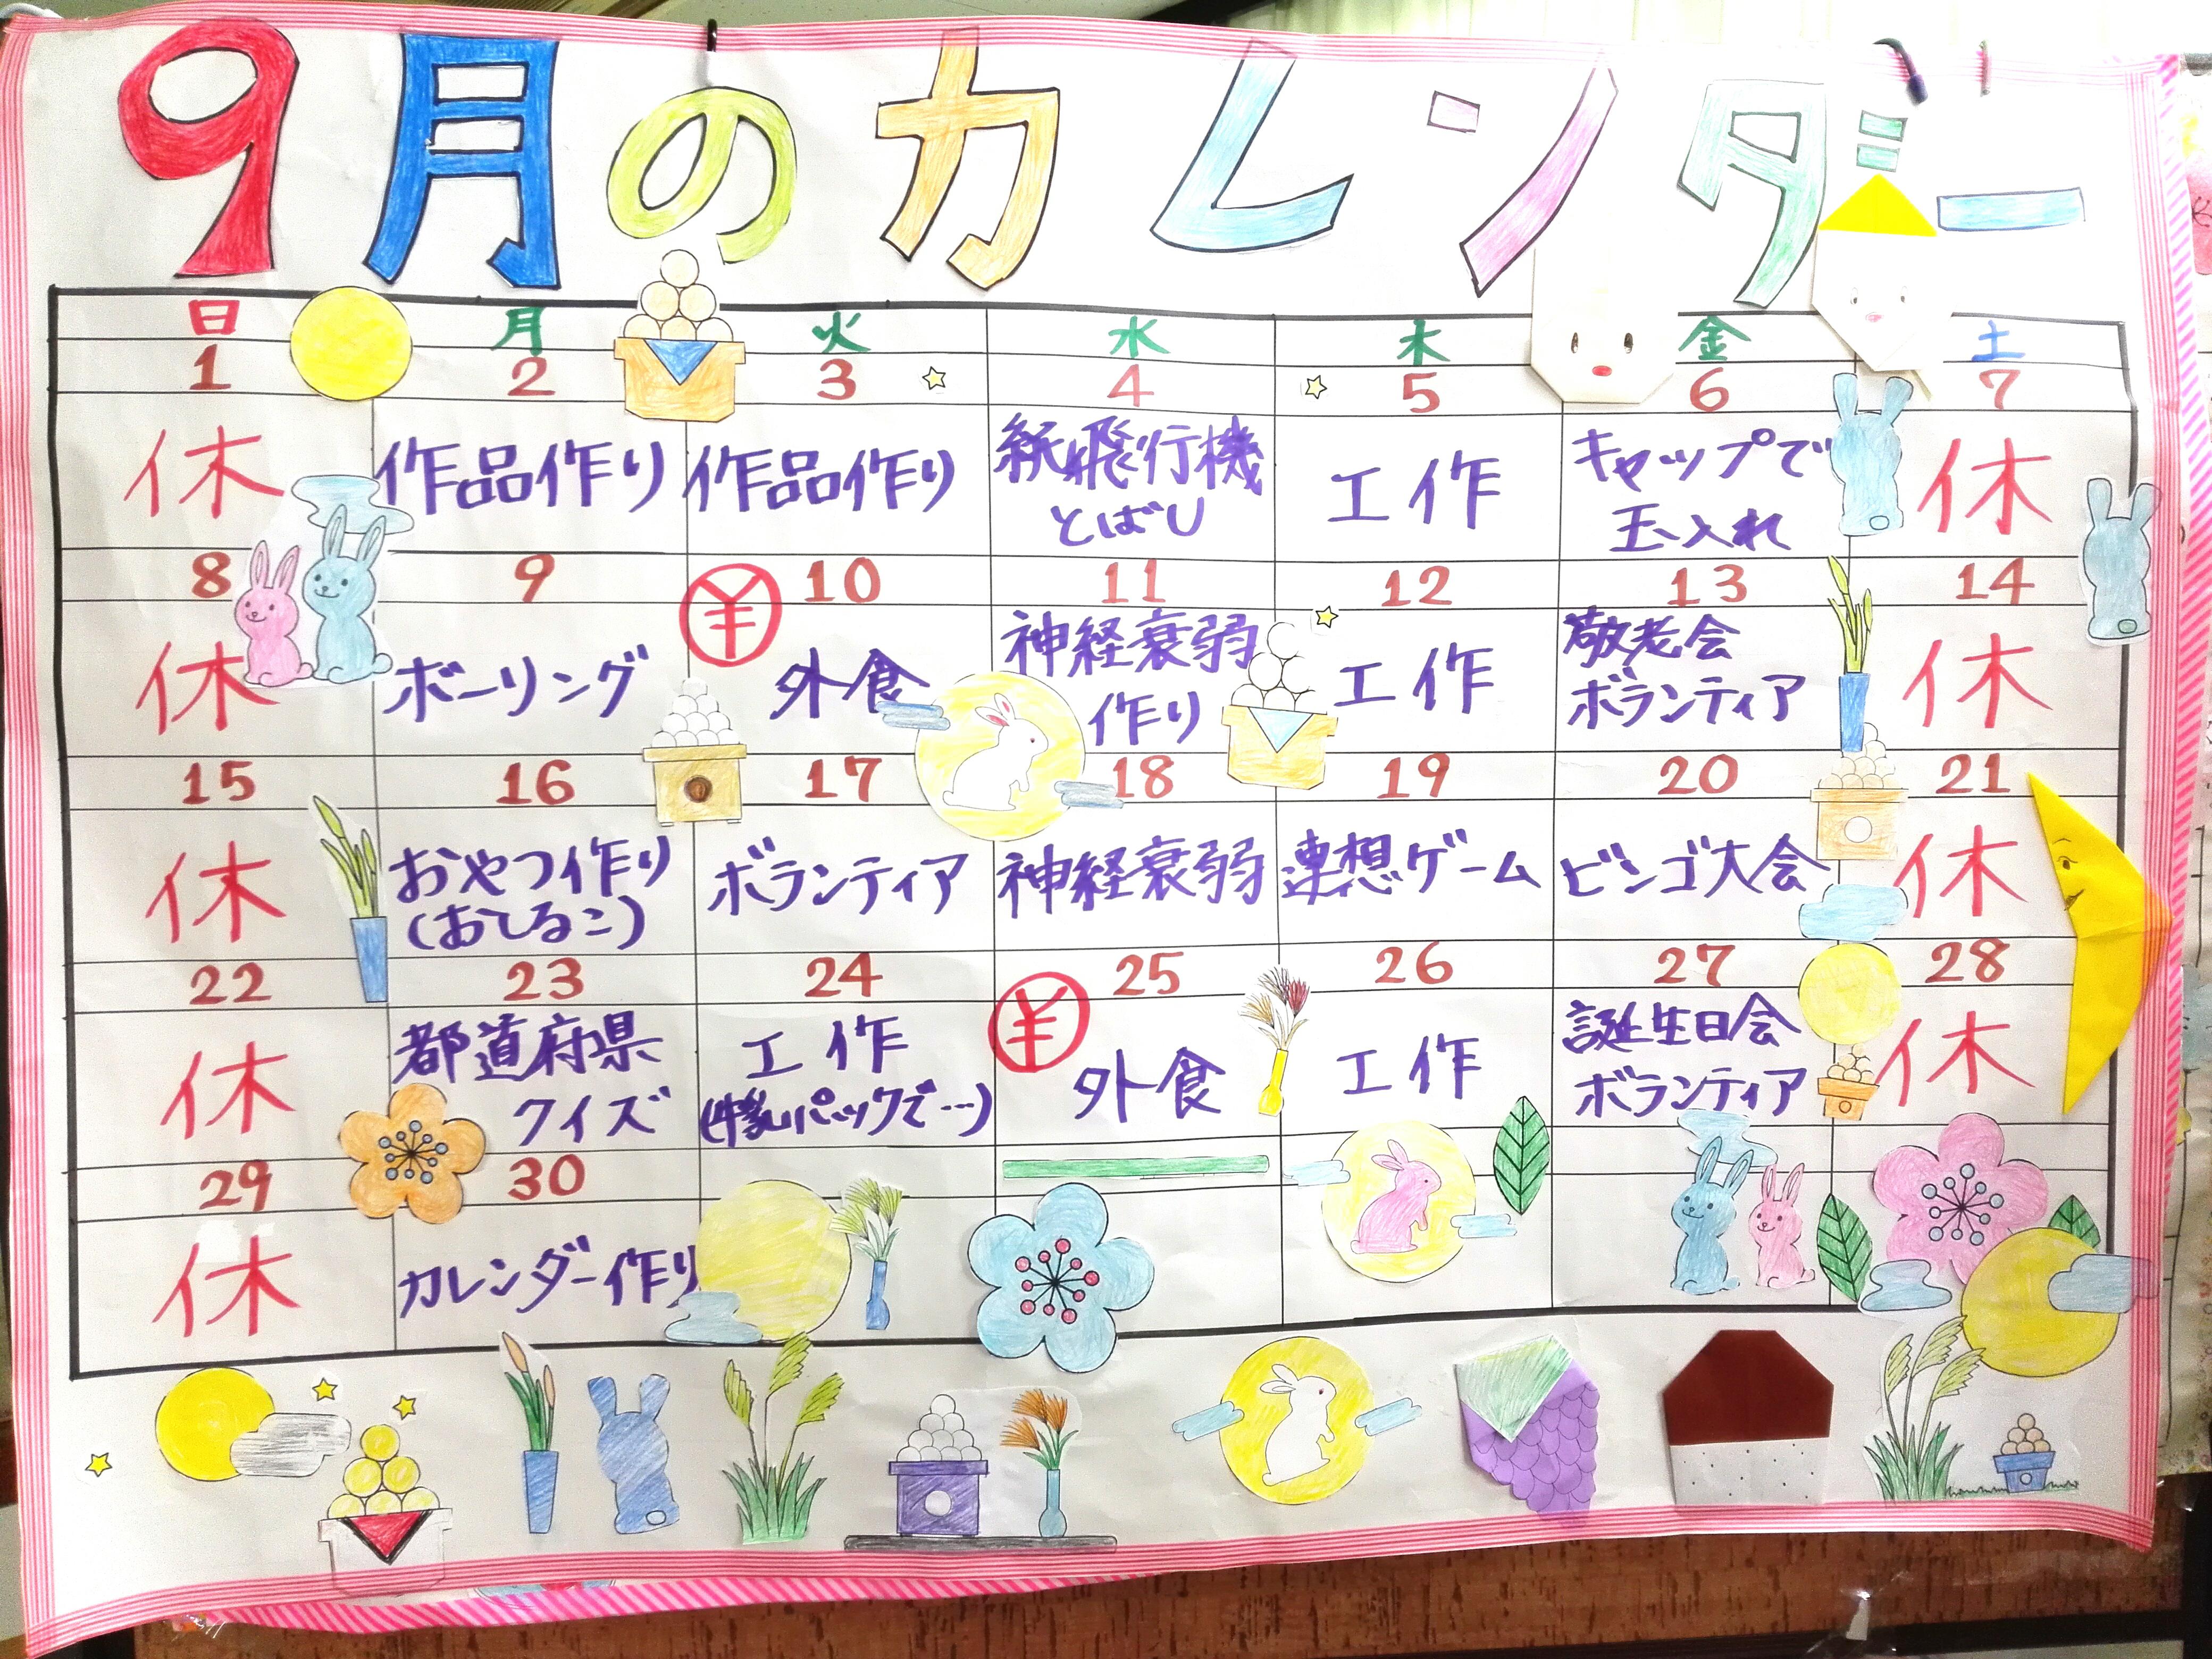 9月のカレンダー
日 月 火 水 木 金 土
1 2 3 4 5 6 7
休 作品作り 作品作り 紙飛行機 工作 キャップで 休
とばし 玉入れ
8 9 10 11 12 13 14
休 ボーリング ¥ 外食 神経衰弱 工作 敬老会 休
作り ボランティア
15 16 17 18 19 20 21
休 おやつ作り ボランティア 神経衰弱 連想ゲーム ビンゴ大会 休
(おしるこ)
22 23 24 25 26 27 28
休 都道府県 工作 ¥ 外食 工作 誕生日会 休
クイズ (牛乳パックで…) ボランティア
29 30
休 カレンダー作り